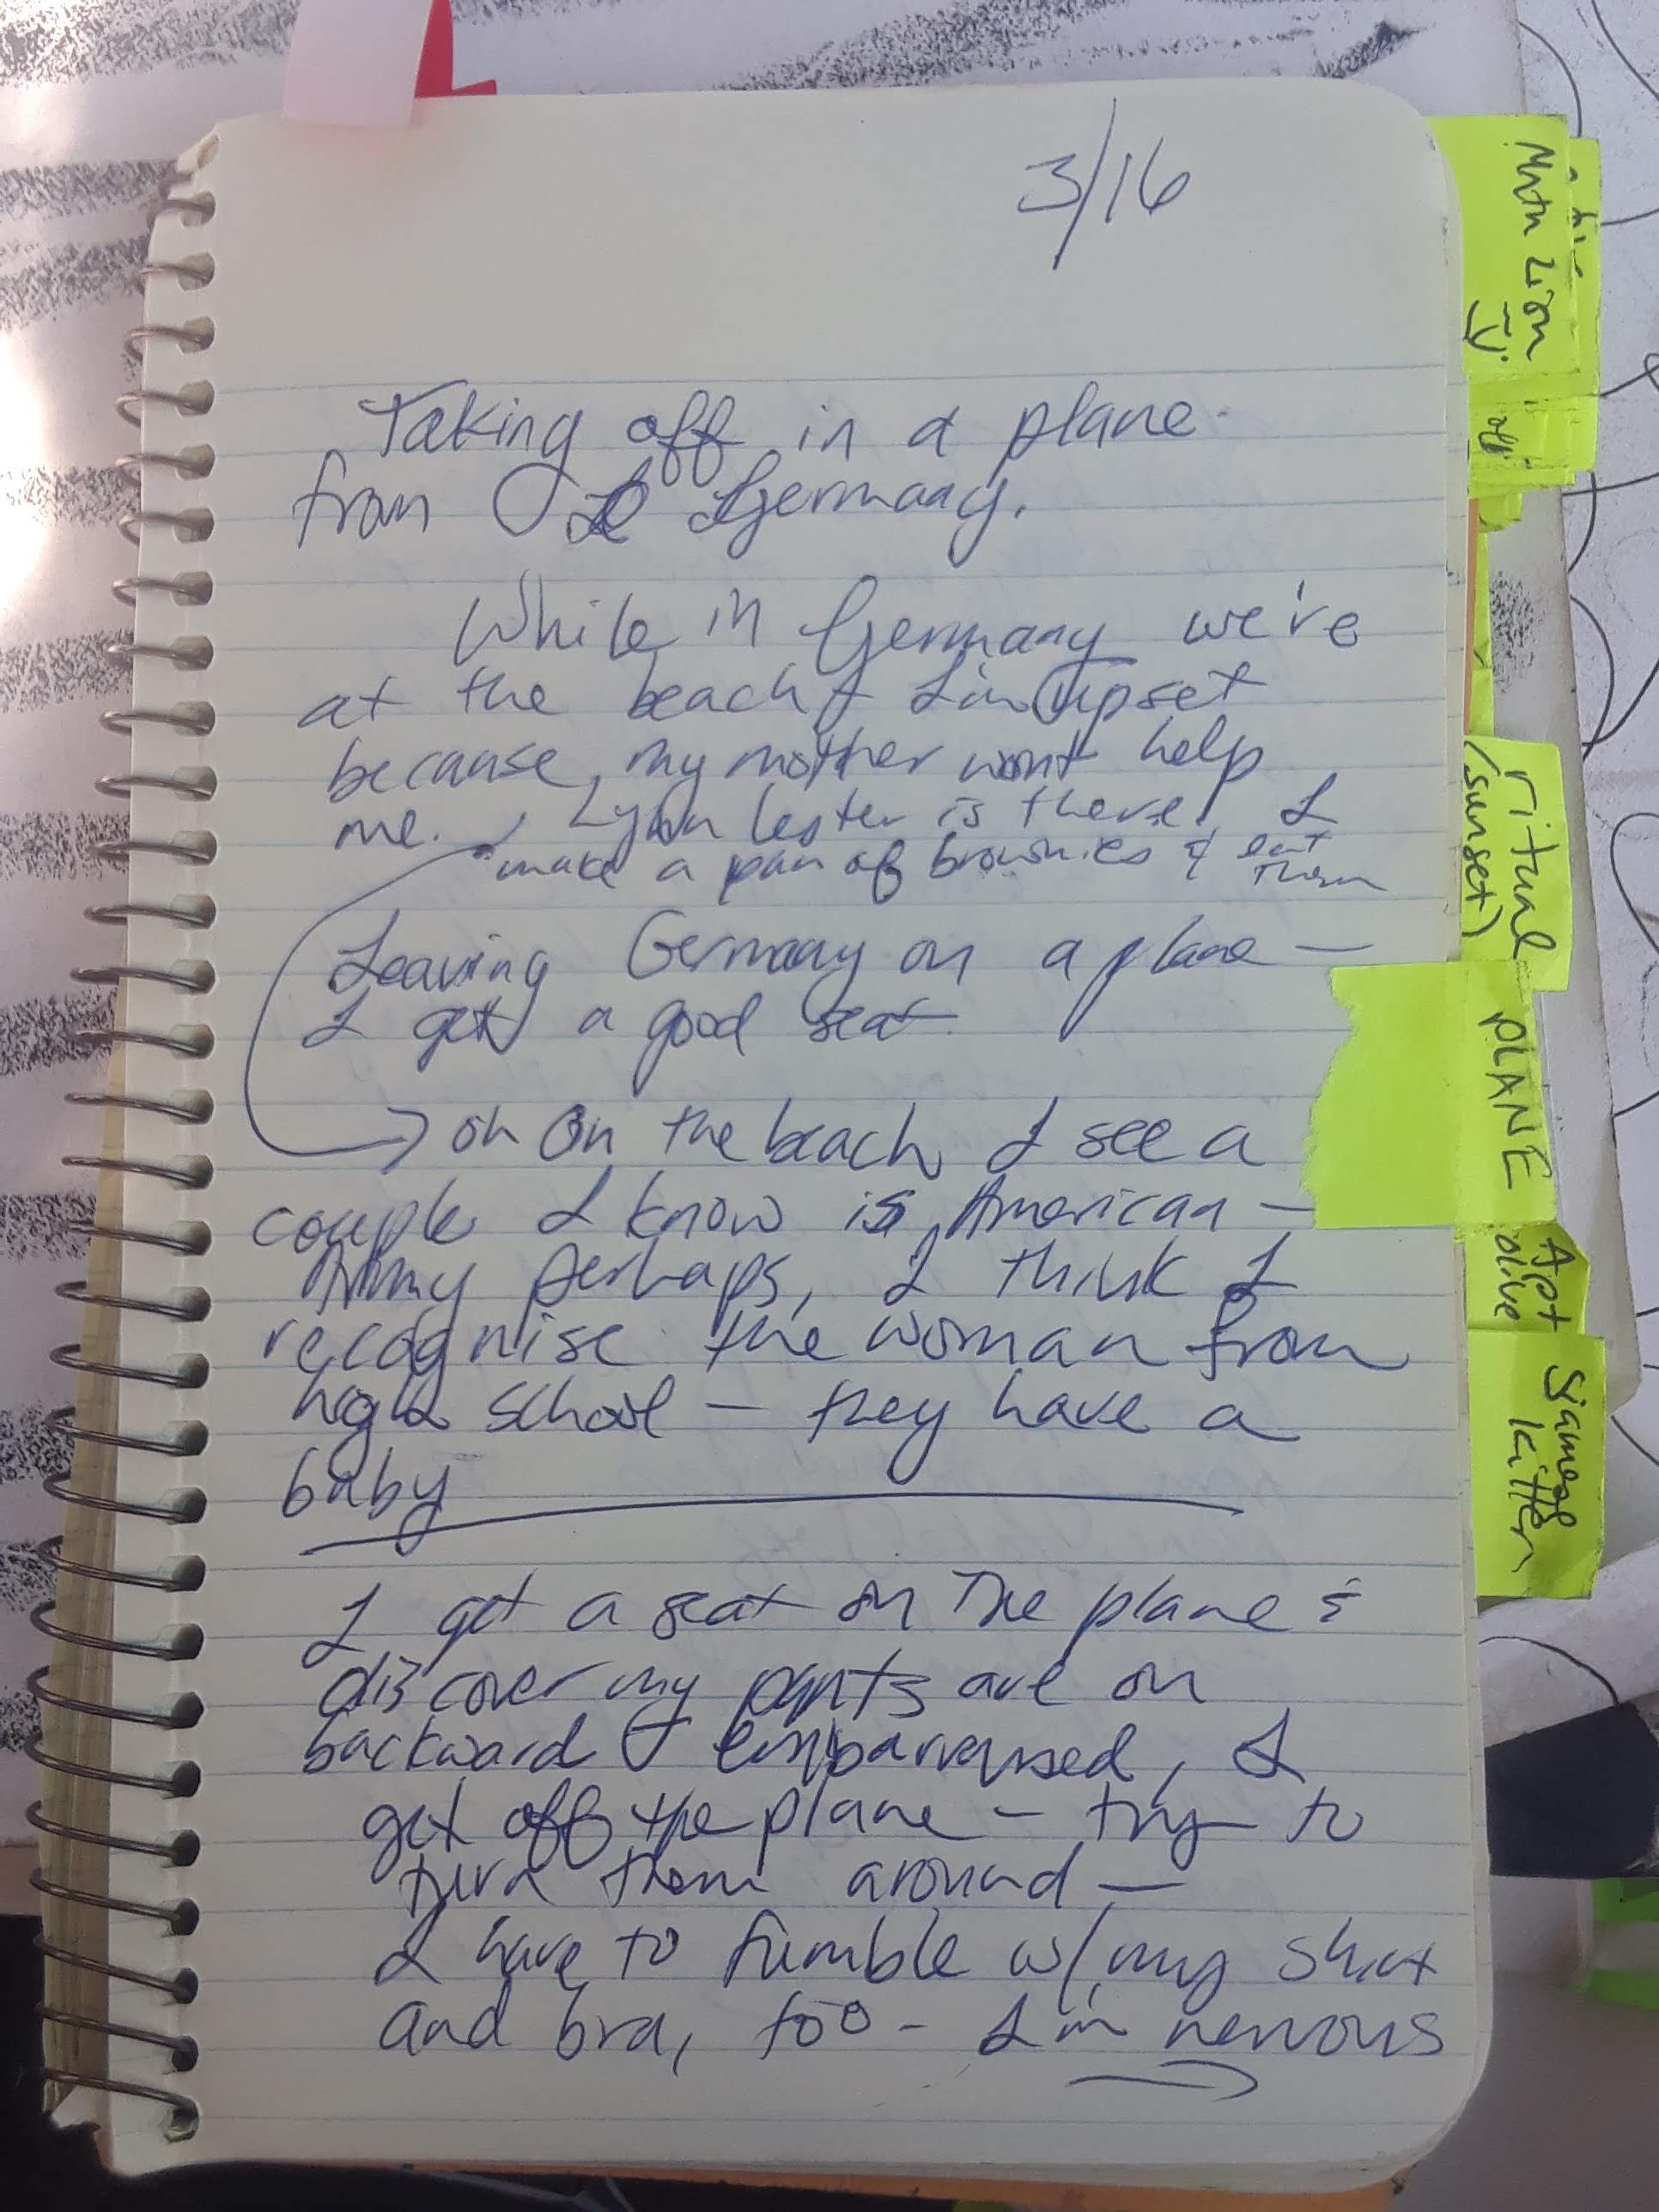 3/16
Taking off in a plane
from Germany.
While in Germany we're
at the beach & I'm upset
because my mother wont help
me. Lester is there, I
make a pan of brownies & eat
them
Leaving Germany on a plane —
I get a good seat
on On the beach I see a
couple I know is American —
Army perhaps, I think I
recognise the woman from
high school — they have a
baby
I get a seat on the plane &
discover my pants are on
backward & embarrassed, I
get off the plane — try to
turn them around —
I have to fumble w/ my shirt
and bra, too - I'm nervous
Mntn Lion
off
ritual
(sunset)
PLANE
Apt
olive
Siamese
kitten